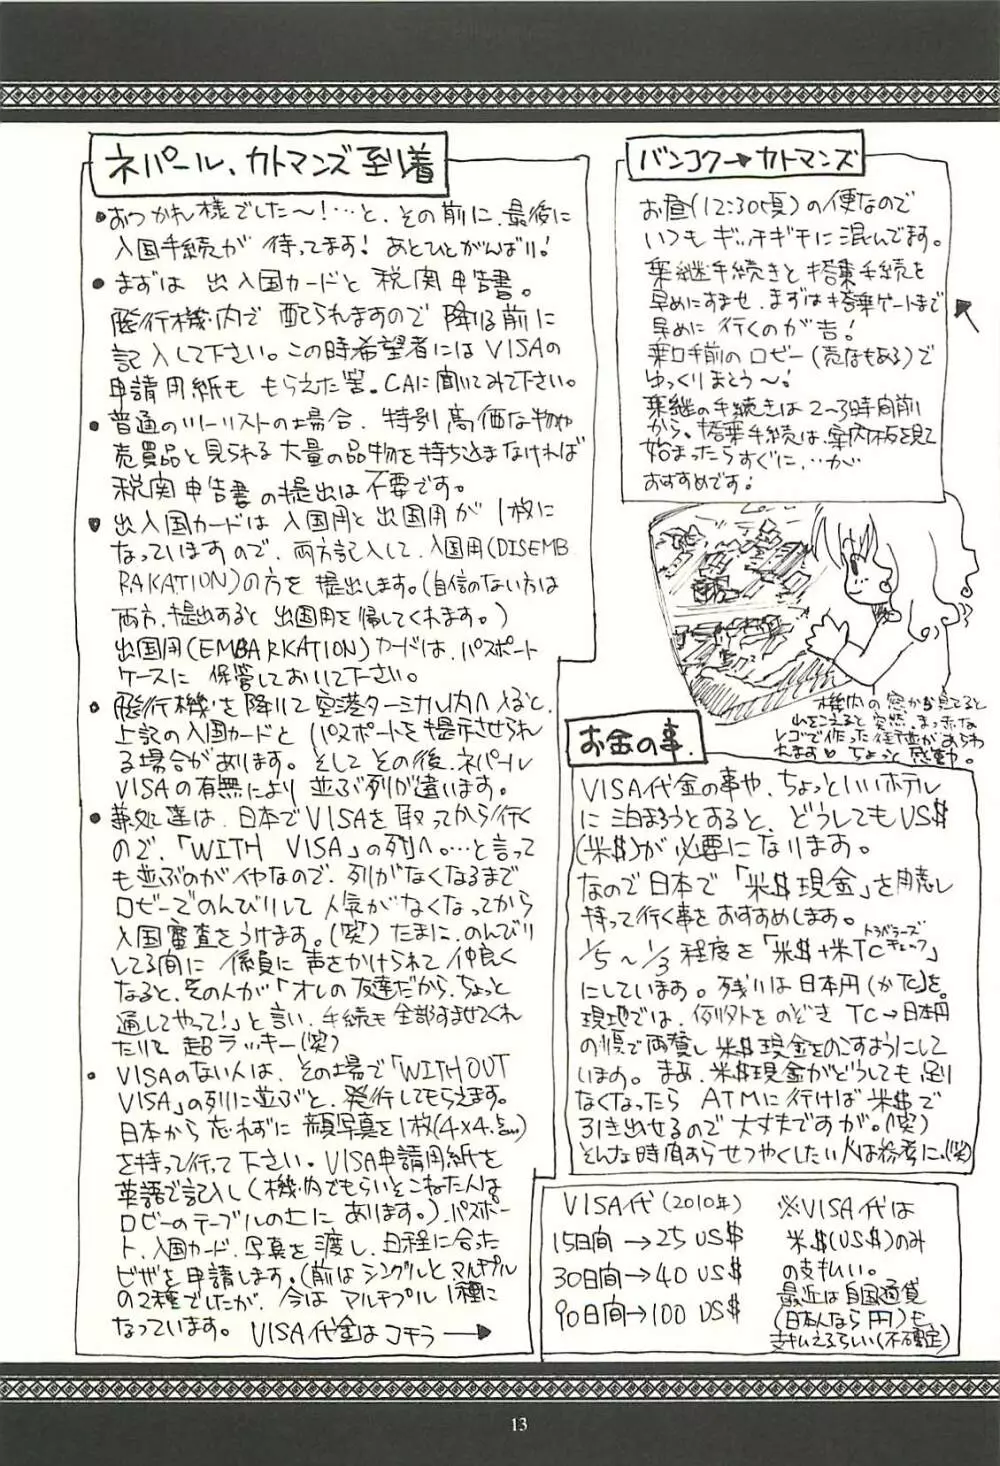 バンコク→カトマンズ
お昼(12:30頃)の便なので
いつもギッチギチに混んでます。
乗継手続きと搭乗手続を
早めにすませ、まずは搭乗ゲートまで
早めに行くのが吉!
乗口手前のロビー(売店もある)で
ゆっくりまとう〜!
乗継の手続きは2〜3時間前
から。搭乗手続は、案内板を見て
始まったらすぐに、…が
おすすめです!
機内の窓から見てると
山をこえると突然、まっ赤な
レゴで作った街並があらわ
れます♡ ちょっと感動。
ネパール、カトマンズ到着
●おつかれ様でした〜!…と、その前に、最後に
入国手続が 待ってます! あとひとがんばり!
●まずは 出入国カードと 税関申告書。
飛行機内で 配られますので 降りる前に
記入して下さい。この時希望者にはVISAの
申請用紙も もらえた筈。CAに聞いてみて下さい。
●普通のツーリストの場合、特別高価な物や
売買品と見られる大量の品物を持ち込まなければ
税関申告書の提出は不要です。
●出入国カードは 入国用と出国用が 1枚に
なっていますので、両方記入して、入国用(DISEMB
RAKATION)の方を 提出します。(自信のない方は
両方、提出すると 出国用を帰してくれます。)
出国用(EMBARKATION)カードは、パスポート
ケースに 保管しておいて下さい。
●飛行機を降りて空港ターミナル内へ入ると、
上記の入国カードと パスポートを提示させられ
る場合があります。そして その後、ネパール
VISAの有無により 並ぶ列が違います。
●兼処達は、日本でVISAを取ってから行く
ので、「WITH VISA」の列へ。…と言って
も並ぶのがイヤなので、列がなくなるまで
ロビーでのんびりして 人気がなくなってから
入国審査をうけます。(笑) たまに、のんびり
してる間に 係員に声をかけられて、仲良く
なると、その人が「オレの友達だから、ちょっと
通してやって!」と言い、手続も全部すませてくれ
たりして 超ラッキー(笑)
●VISAのない人は、その場で「WITHOUT
VISA」の列に並ぶと、発行してもらえます。
日本から忘れずに 顔写真を1枚(4×4.5cm)
を持って行って下さい。VISA申請用紙を
英語で記入し(機内でもらいそこねた人は
ロビーのテーブルの上に あります。)、パスポー
ト、入国カード、写真を渡し、日程に合った
ビザを申請します。(前はシングルと マルチプル
の2種でしたが、今は マルチプル1種に
なっています。 VISA代金はコチラ→
お金の事.
VISA代金の事や、ちょっといいホテル
に泊まろうとすると、どうしてもUS$
(米$)が必要になります。
なので日本で「米$現金」を用意し
持って行く事をおすすめします。
1/5〜1/3程度を「米$+米TC(トラベラーズチェック)」
にしています。残りは日本円(かた)を。
現地では、例外をのぞき TC→日本円
の順で両替し 米$現金をのこすようにして
います。まぁ、米$現金がどうしても足り
なくなったら ATMに行けば米$で
引き出せるので大丈夫ですが。(笑)
そんな時間あらせつやくしたい人は参考に。(笑)
VISA代(2010年)
15日間→25 US$
30日間→40 US$
90日間→100 US$
※VISA代は
米$(US$)のみ
の支払い。
最近は自国通貨
(日本人なら円)も
支払えるらしい(不確定)
13